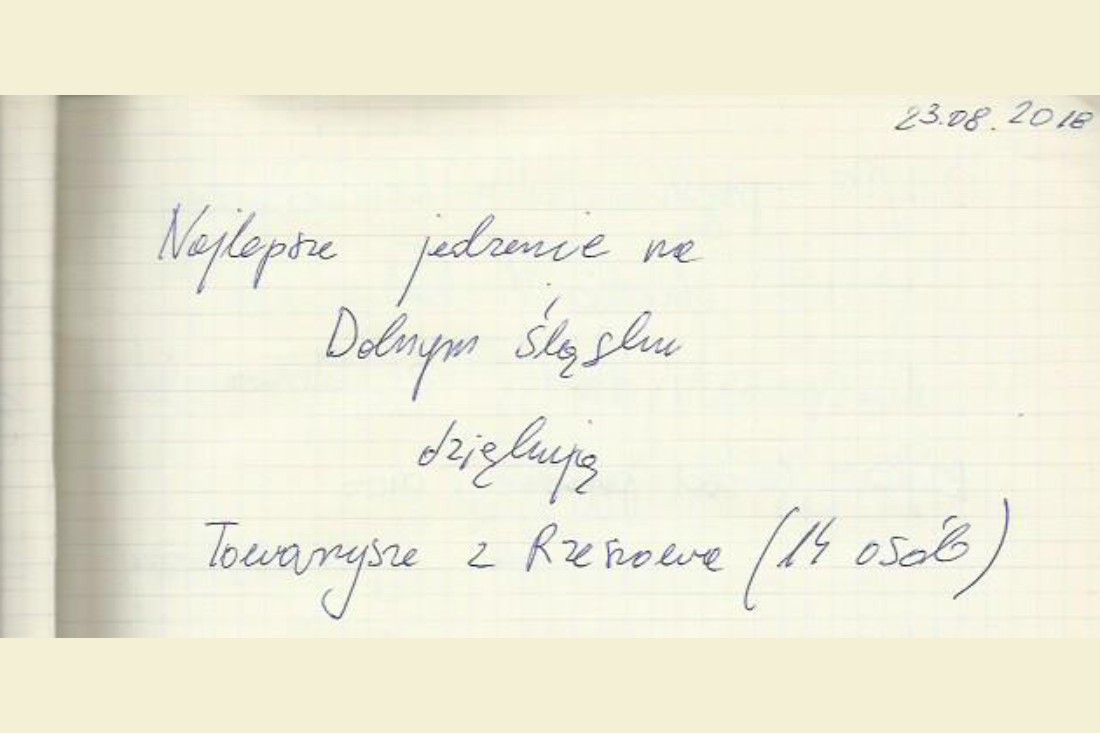 23.08.2018
Najlepsze jedzenie na
Dolnym Śląsku
dziękują
Towarzysze z Rzeszowa (14 osób)